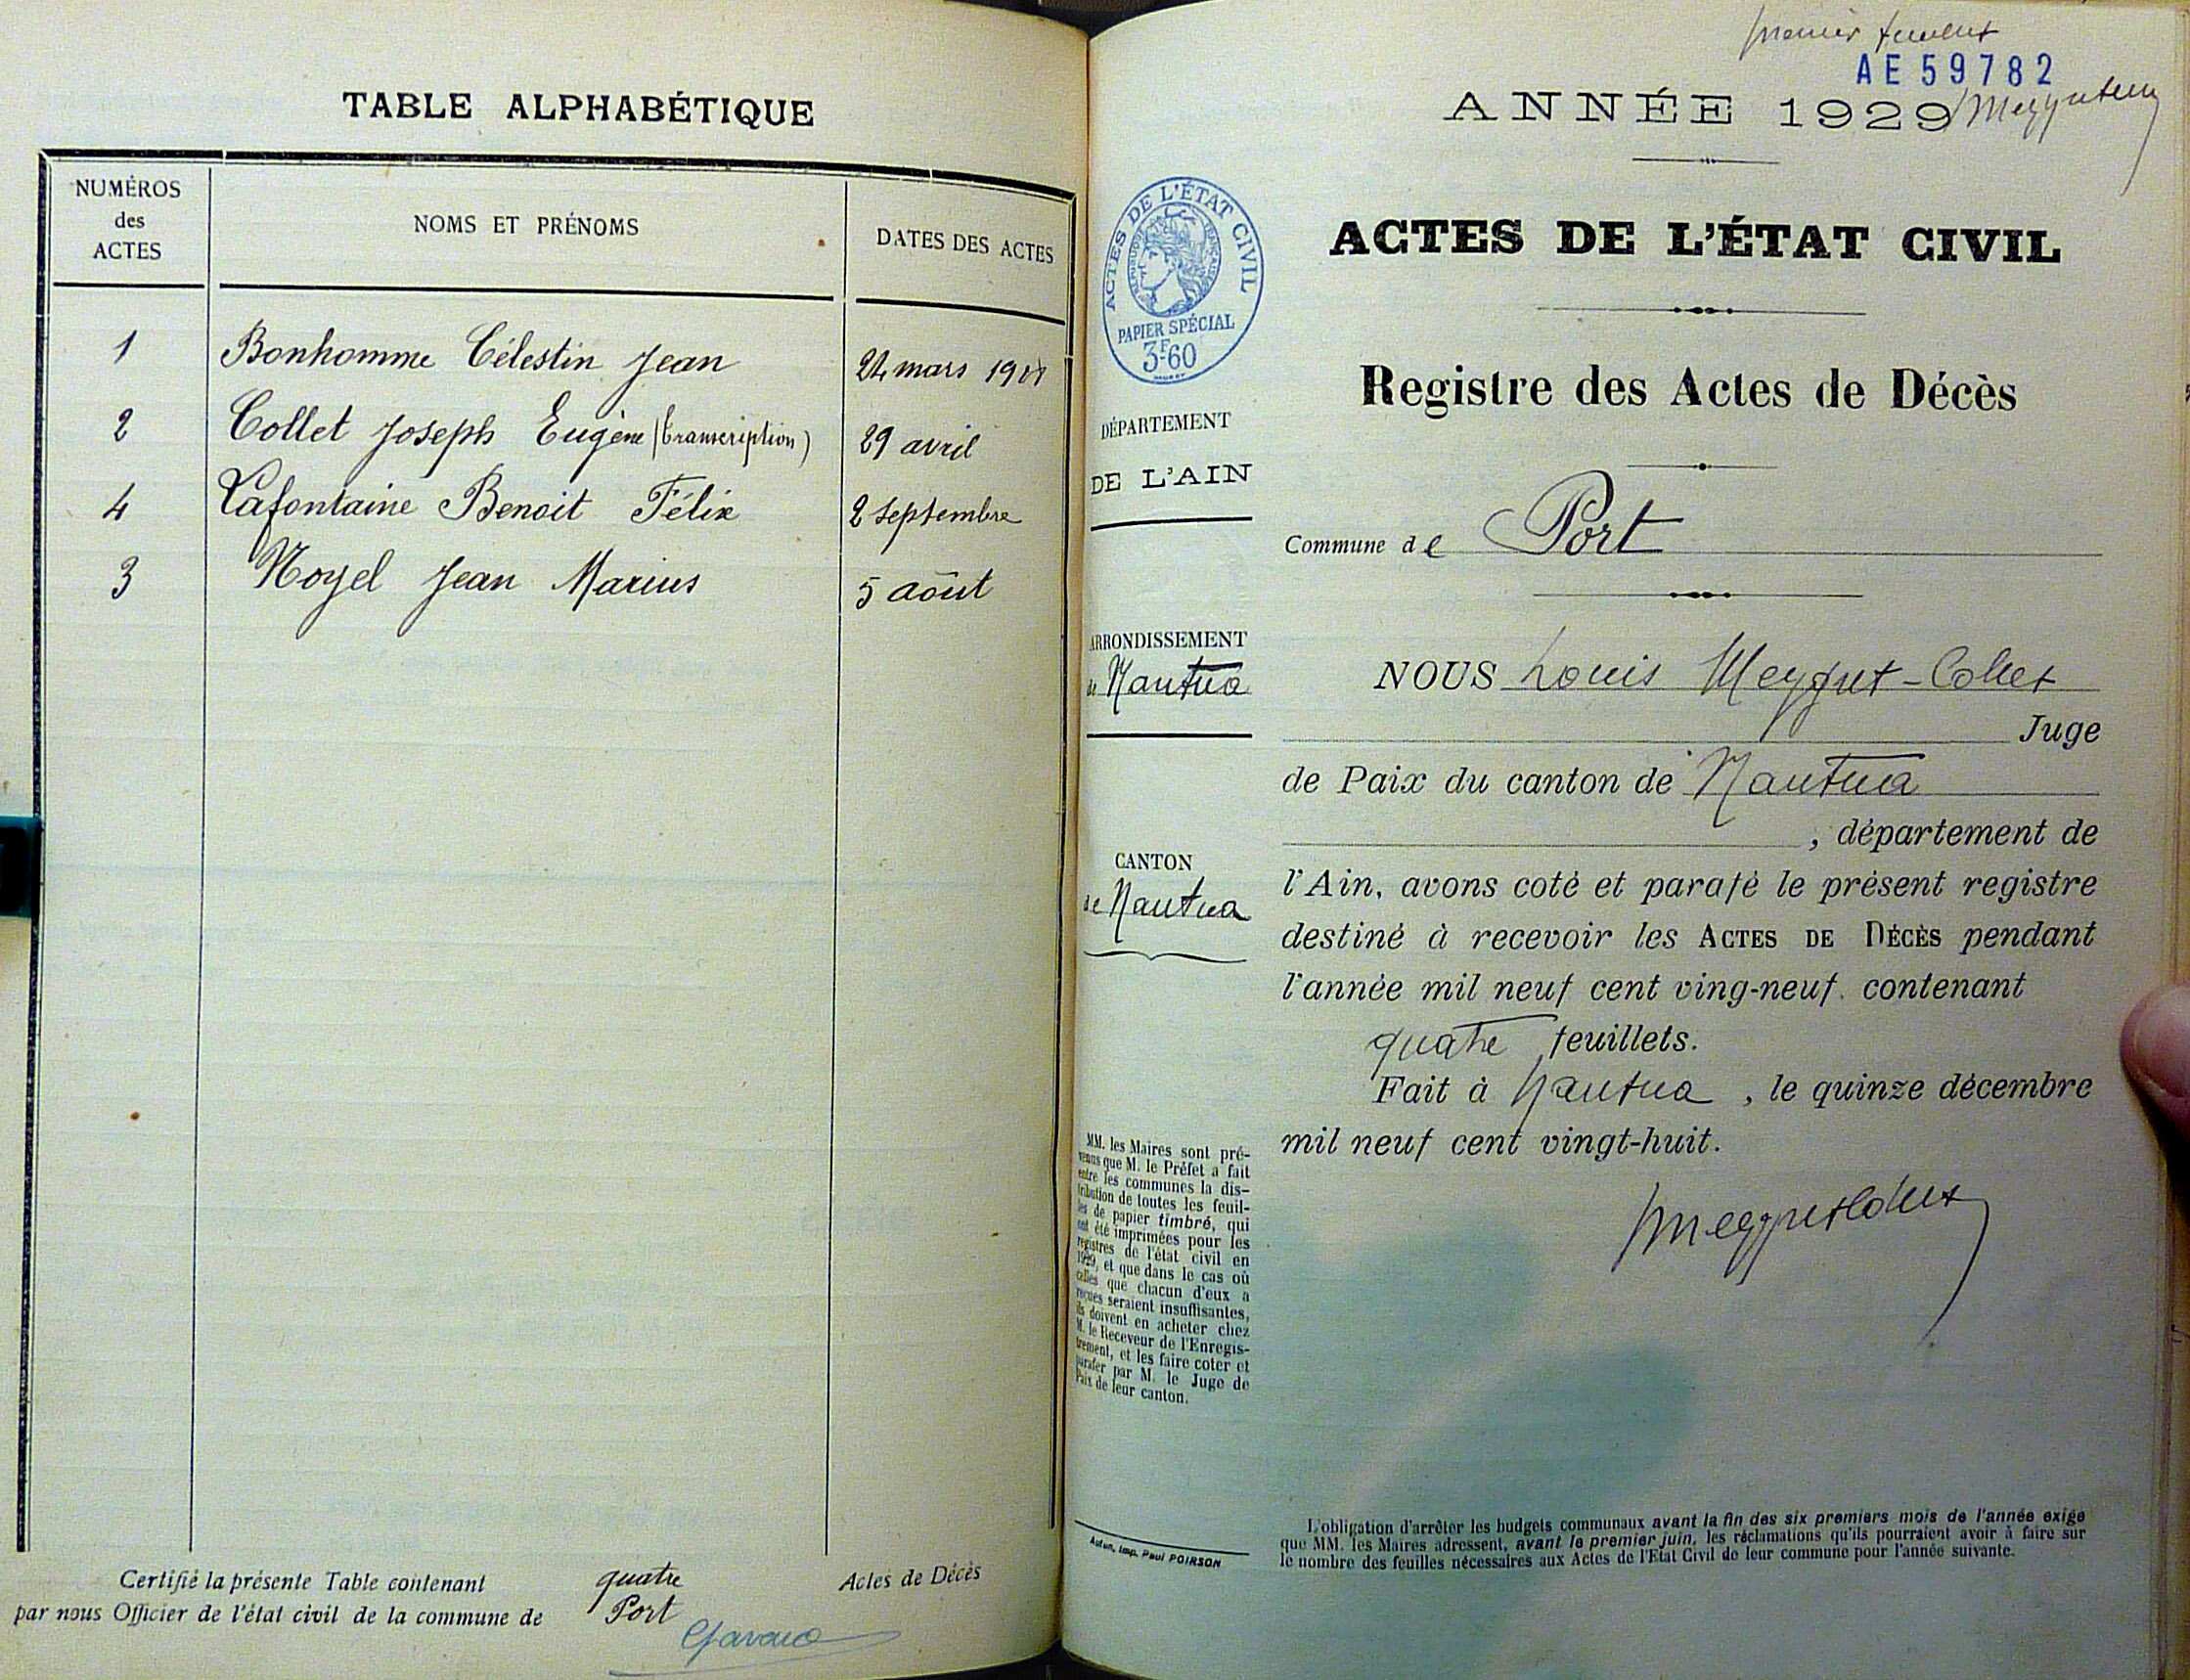 TABLE ALPHABÉTIQUE
NUMÉROS
des
ACTES
NOMS ET PRÉNOMS
DATES DES ACTES
1 Bonhomme Célestin Jean 24 mars
2 Collet Joseph Eugène (transcription) 29 avril
4 Lafontaine Benoit Félix 2 septembre
3 Noyel Jean Marius 5 août
Certifié la présente Table contenant quatre Actes de Décès
par nous Officier de l'état civil de la commune de Port
premier
AE 59782
ANNÉE 1929
ACTES DE L'ÉTAT CIVIL
RÉPUBLIQUE FRANÇAISE
PAPIER SPÉCIAL
3F60
ACTES DE L'ÉTAT CIVIL
Registre des Actes de Décès
DÉPARTEMENT
DE L'AIN
Commune de Port
ARRONDISSEMENT
de Nantua
CANTON
de Nantua
NOUS Louis
Juge
de Paix du canton de Nantua
, département de
l'Ain, avons coté et parafé le présent registre
destiné à recevoir les ACTES DE DÉCÈS pendant
l'année mil neuf cent ving-neuf. contenant
quatre feuillets.
Fait à Nantua , le quinze décembre
mil neuf cent vingt-huit.
MM. les Maires sont pré-
venus que M. le Préfet a fait
entre les communes la dis-
tribution de toutes les feuil-
les de papier timbré, qui
ont été imprimées pour les
registres de l'état civil en
1929, et que dans le cas où
celles que chacun d'eux a
reçues seraient insuffisantes,
ils doivent en acheter chez
M. le Receveur de l'Enregis-
trement, et les faire coter et
parafer par M. le Juge de
Paix de leur canton.
Autun, Imp. Paul POIRSON
L'obligation d'arrêter les budgets communaux avant la fin des six premiers mois de l'année exige
que MM. les Maires adressent, avant le premier juin, les réclamations qu'ils pourraient avoir à faire sur
le nombre des feuilles nécessaires aux Actes de l'Etat Civil de leur commune pour l'année suivante.